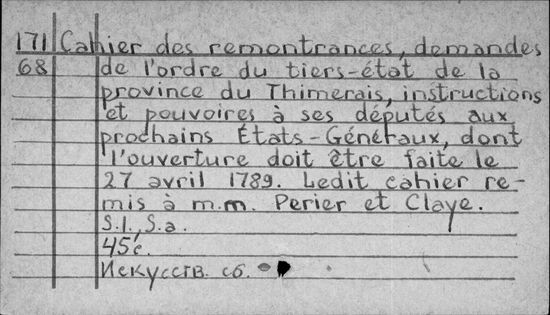 171 Cahier des remontrances, demandes
68 de l'ordre du tiers-état de la
province du Thimerais, instructions
et pouvoires à ses députés aux
prochains États-Généraux, dont
l'ouverture doit être faite le
27 avril 1789. Ledit cahier re-
mis à m.m. Perier et Claye.
S.l., S.a.
45 c.
Искусств. сб.